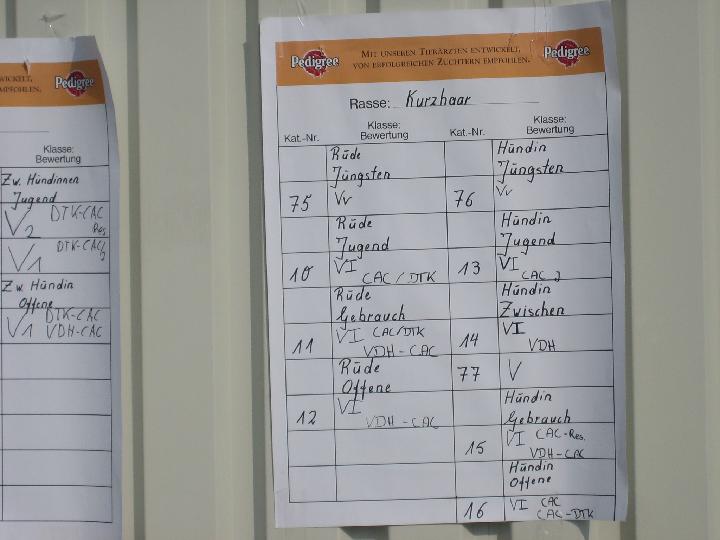 WICKELT,
MPFOHLEN.
Pedigree
Klasse:
Bewertung
Zw. Hündinnen
Jugend
V2 DTK-CAC
Res
V1 DTK-CAC
Zw. Hündin
Offene
V1 DTK-CAC
VDH-CAC
Pedigree
MIT UNSEREN TIERÄRZTEN ENTWICKELT,
VON ERFOLGREICHEN ZÜCHTERN EMPFOHLEN.
Pedigree
Rasse: Kurzhaar
Kat.-Nr. Klasse: Bewertung Kat.-Nr. Klasse: Bewertung
Rüde Hündin
Jüngsten Jüngsten
75 Vv 76 Vv
Rüde Hündin
Jugend Jugend
10 VI CAC/DTK 13 VI CAC J
Rüde Hündin
Gebrauch Zwischen
11 VI CAC/DTK 14 VI
VDH-CAC VDH
Rüde 77 V
Offene
12 VI VDH-CAC
Hündin
Gebrauch
15 VI CAC-Res.
VDH-CAC
Hündin
Offene
16 VI CAC
CAC-DTK